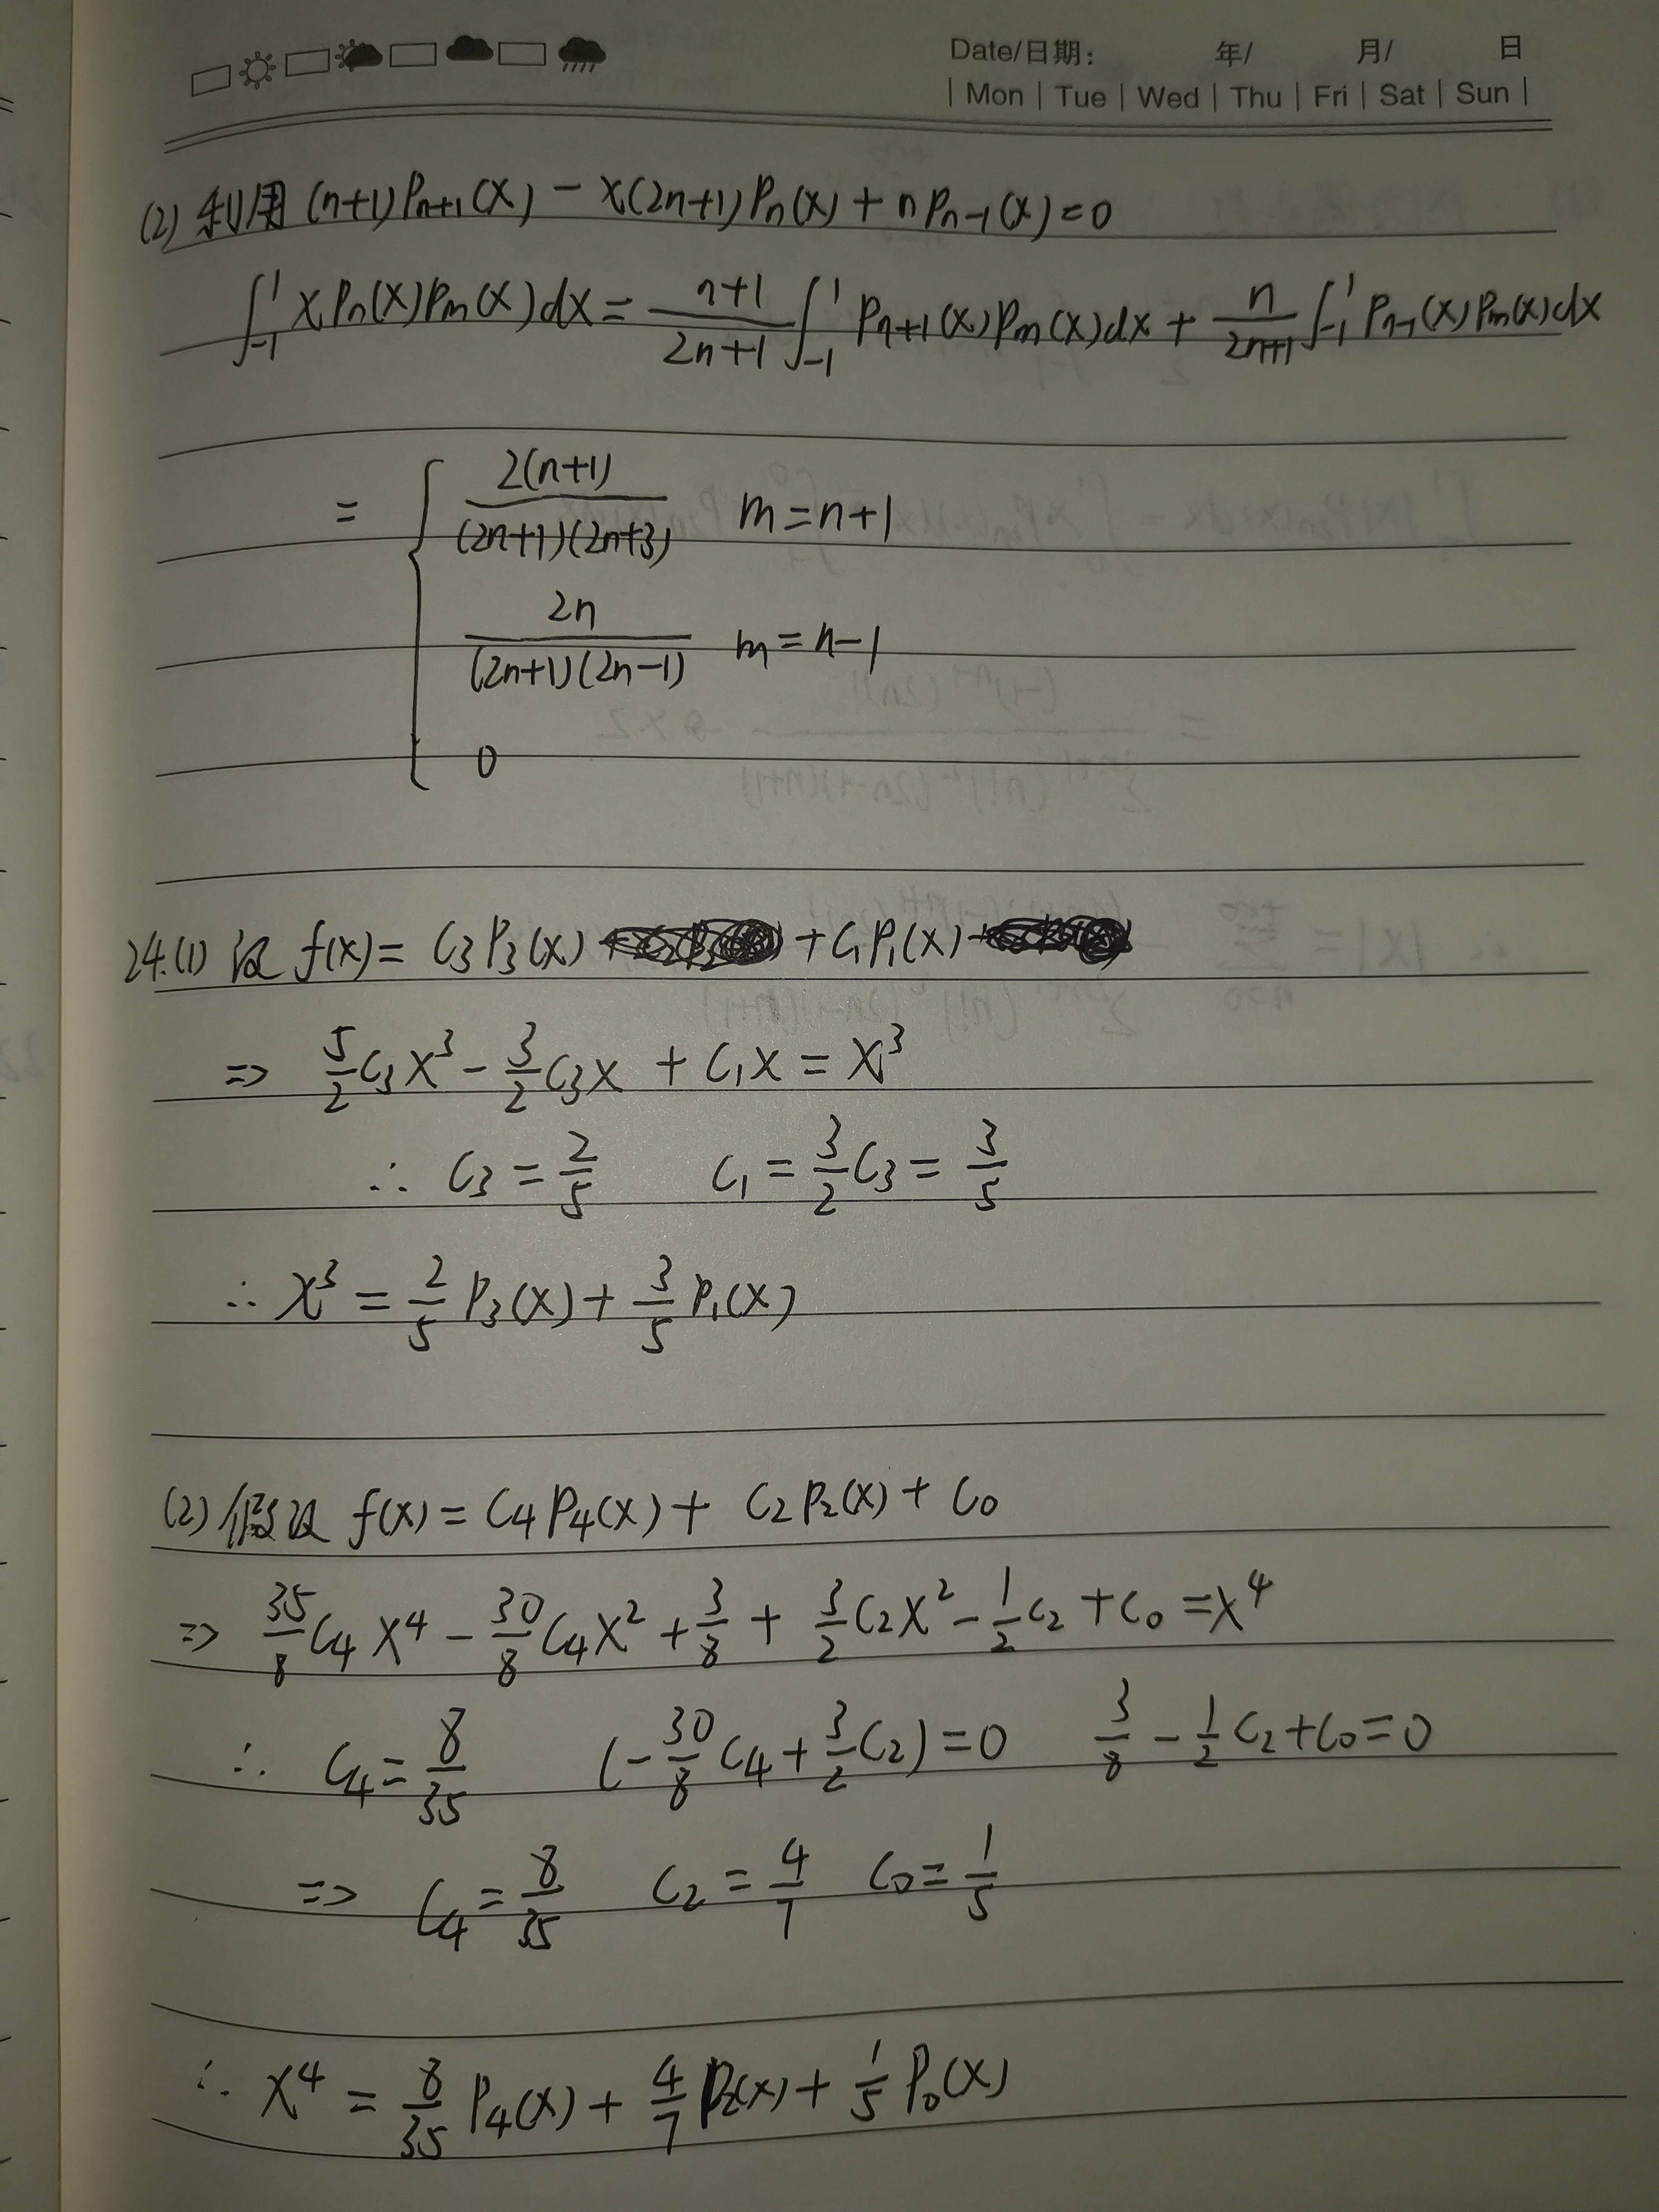 Date/日期: 年/ 月/ 日
| Mon | Tue | Wed | Thu | Fri | Sat | Sun |
(2) 利用 (n+1)Pn+1(x) - x(2n+1)Pn(x) + nPn-1(x) = 0
∫_{-1}^{1} xPn(x)Pm(x)dx = \frac{n+1}{2n+1} ∫_{-1}^{1} Pn+1(x)Pm(x)dx + \frac{n}{2n+1} ∫_{-1}^{1} Pn-1(x)Pm(x)dx
= { \frac{2(n+1)}{(2n+1)(2n+3)} m=n+1
\frac{2n}{(2n+1)(2n-1)} m=n-1
0
24.(1) 设 f(x) = C₃P₃(x) + C₁P₁(x)
⇒ \frac{5}{2}C₃x³ - \frac{3}{2}C₃x + C₁x = x³
∴ C₃ = \frac{2}{5} C₁ = \frac{3}{2}C₃ = \frac{3}{5}
∴ x³ = \frac{2}{5}P₃(x) + \frac{3}{5}P₁(x)
(2) 假设 f(x) = C₄P₄(x) + C₂P₂(x) + C₀
⇒ \frac{35}{8}C₄x⁴ - \frac{30}{8}C₄x² + \frac{3}{8} + \frac{3}{2}C₂x² - \frac{1}{2}C₂ + C₀ = x⁴
∴ C₄ = \frac{8}{35} (-\frac{30}{8}C₄ + \frac{3}{2}C₂) = 0 \frac{3}{8} - \frac{1}{2}C₂ + C₀ = 0
⇒ C₄ = \frac{8}{35} C₂ = \frac{4}{7} C₀ = \frac{1}{5}
∴ x⁴ = \frac{8}{35}P₄(x) + \frac{4}{7}P₂(x) + \frac{1}{5}P₀(x)